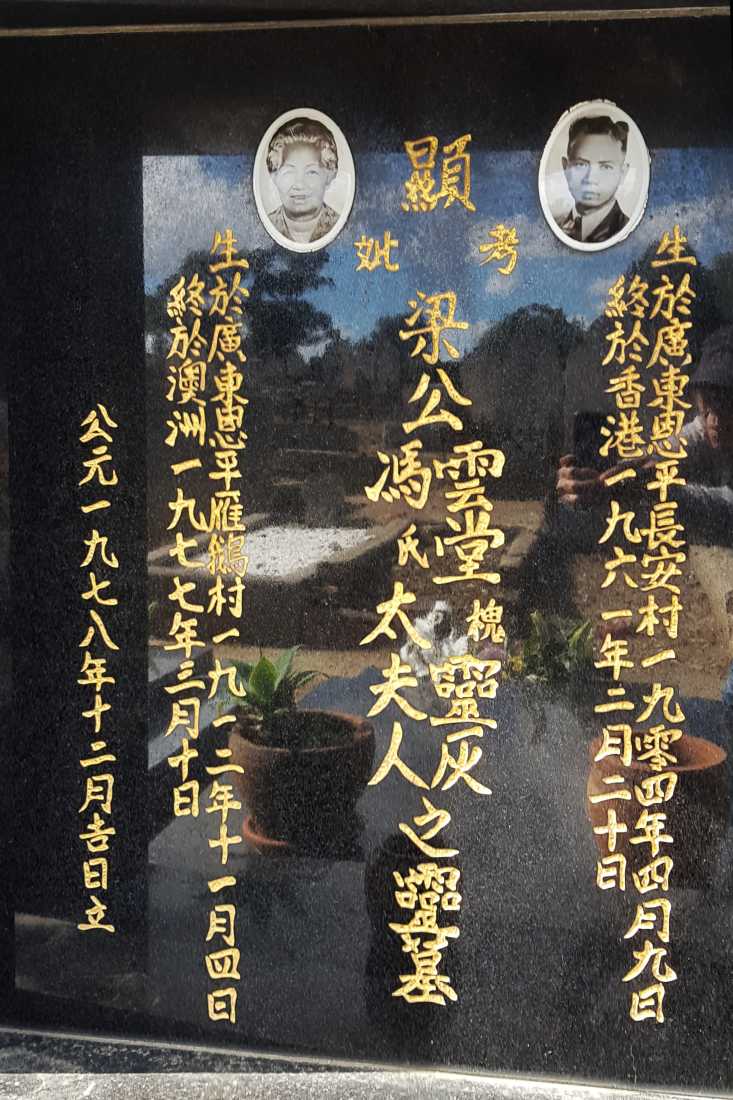 生於廣東恩平長安村一九零四年四月九日
終於香港一九六一年二月二十日
顯
考
妣
梁公
雲堂槐靈灰
馮氏太夫人
之靈墓
生於廣東恩平雁鵝村一九一二年十一月四日
終於澳洲一九七七年三月十日
公元一九七八年十二月吉日立